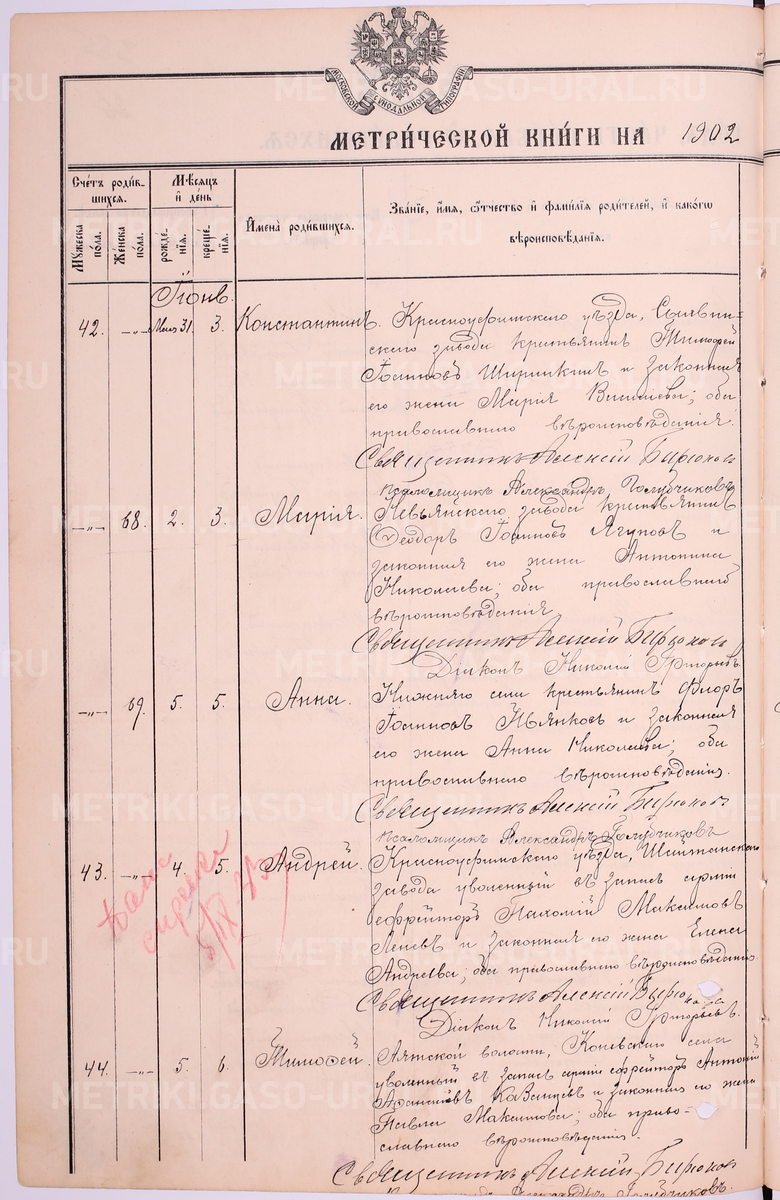 МОСКОВСКОЙ СѴНОДАЛЬНОЙ ТИПОГРАФІИ
МЕТРИ́ЧЕСКОЙ КНИ́ГИ НА 1902
Сче́тъ роди́в-
шихся.
Мѣсяцъ
и҆ де́нь
И҆мена̀ роди́вшихся.
Зва́нїе, и҆́мя, ѻ҆́тчество и҆ фами́лїя роди́телей, и҆ како́гѡ
вѣроисповѣ́данїя.
Мꙋ́жеска
по́ла.
Же́нска
по́ла.
рожде-
нїя.
креще́-
нїя.
Іюнь.
42. –„– Мая 31. 3. Константинъ. Красноуфимскаго уѣзда, Сылвин-
скаго завода крестьянинъ Тимофей
Іоанновъ Ширинкинъ и законная
его жена Марія Васильева; оба
православнаго вѣроисповѣданія.
Священникъ Алексій Бирюковъ
Псаломщикъ Александръ Голубчиковъ
–„– 68. 2. 3. Марія. Невьянскаго завода крестьянинъ
Ѳеодоръ Іоанновъ Ягуповъ и
законная его жена Антонина
Николаева; оба православнаго
вѣроисповѣданія
Священникъ Алексій Бирюковъ
Діаконъ Николай Григорьевъ.
–„– 69. 5. 5. Анна. Нижняго села крестьянинъ Флоръ
Іоанновъ и законная
его жена Анна Николаева; оба
православнаго вѣроисповѣданія.
Священникъ Алексій Бирюковъ
Псаломщикъ Александръ Голубчиковъ
43. –„– 4. 5. Андрей. Красноуфимскаго уѣзда, Шайтанскаго
завода уволенный въ запасъ арміи
ефрейторъ Пахомій Максимовъ
и законная его жена Елена
Андреева; оба православнаго вѣроисповѣданія
Дана
справка
5/IX
Священникъ Алексій Бирюковъ
Діаконъ Николай Григорьевъ.
44. –„– 5. 6. Тимоѳей. Аятской волости, Коневскаго села
уволенный въ запасъ арміи ефрейторъ Антоній
Казанцевъ и законная его жена
Павла Максимова; оба право-
славнаго вѣроисповѣданія.
Священникъ Алексій Бирюковъ
Александръ Голубчиковъ.
METRIKI.GASO-URAL.RU